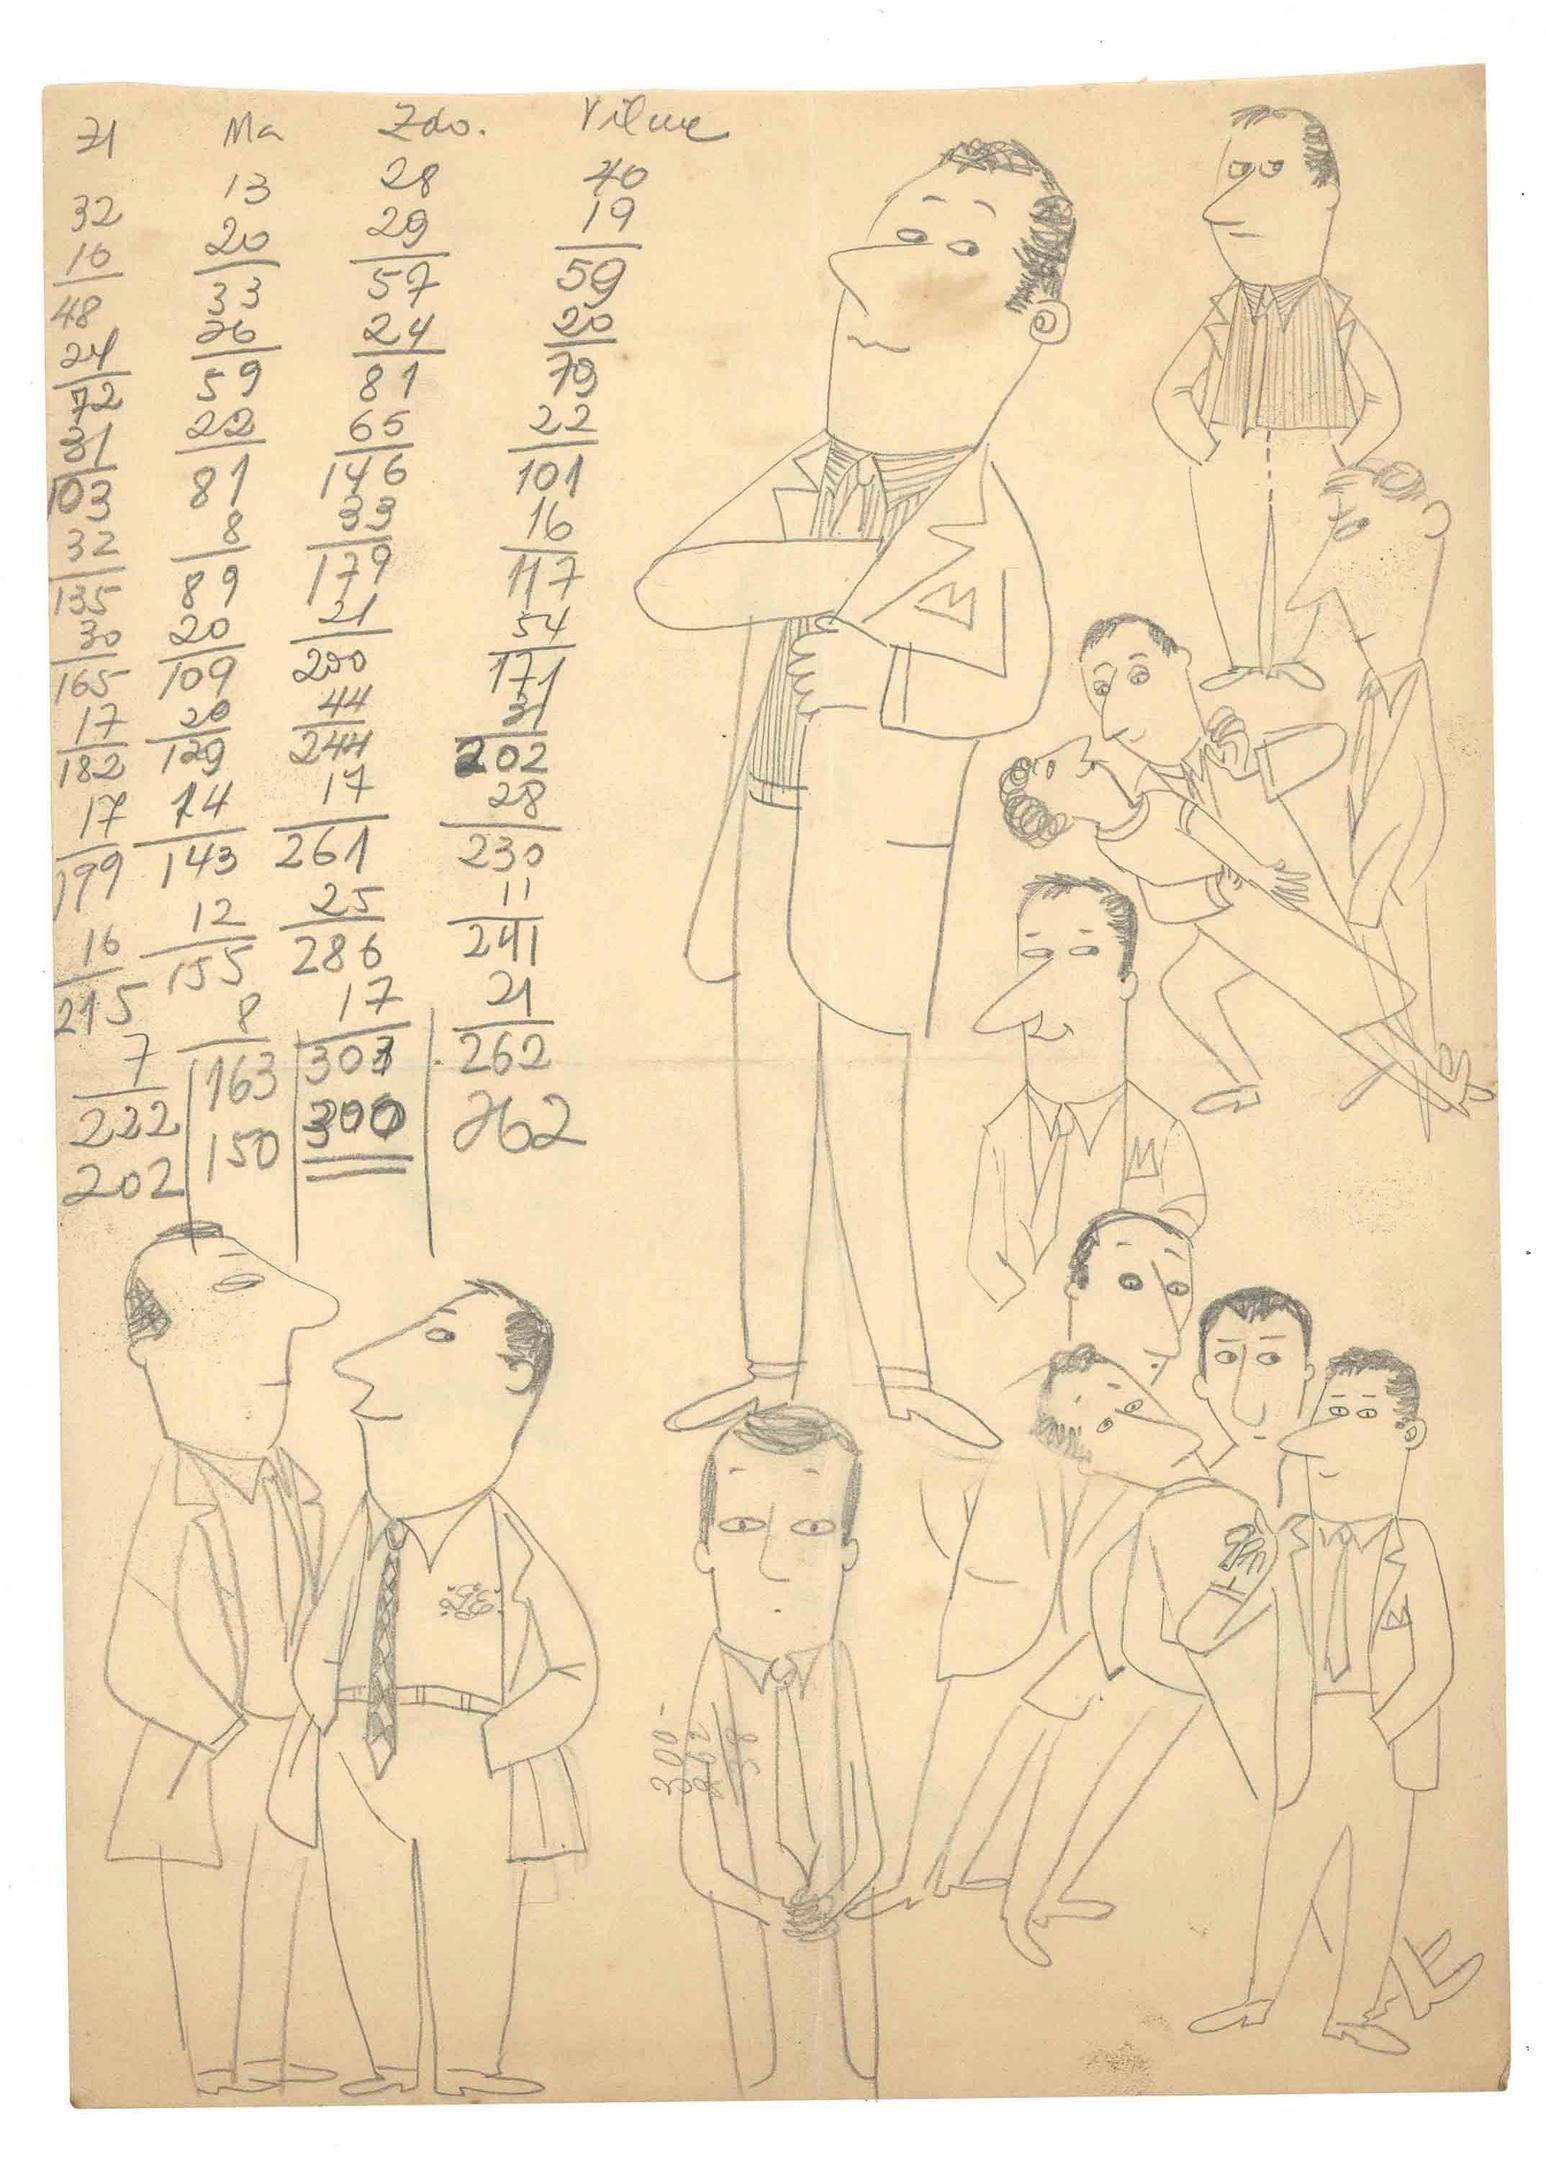 Ma Zdo. Vilme
32 13 28 40
16 20 29 19
48 33 57 59
24 26 24 20
72 59 81 79
31 22 65 22
103 81 146 101
32 8 33 16
135 89 179 117
30 20 21 54
165 109 200 171
17 20 44 31
182 129 244 202
17 14 17 28
199 143 261 230
16 12 25 11
215 155 286 241
7 8 17 21
222 163 303 262
202 150 300 262
M
M
M
300-
262
38